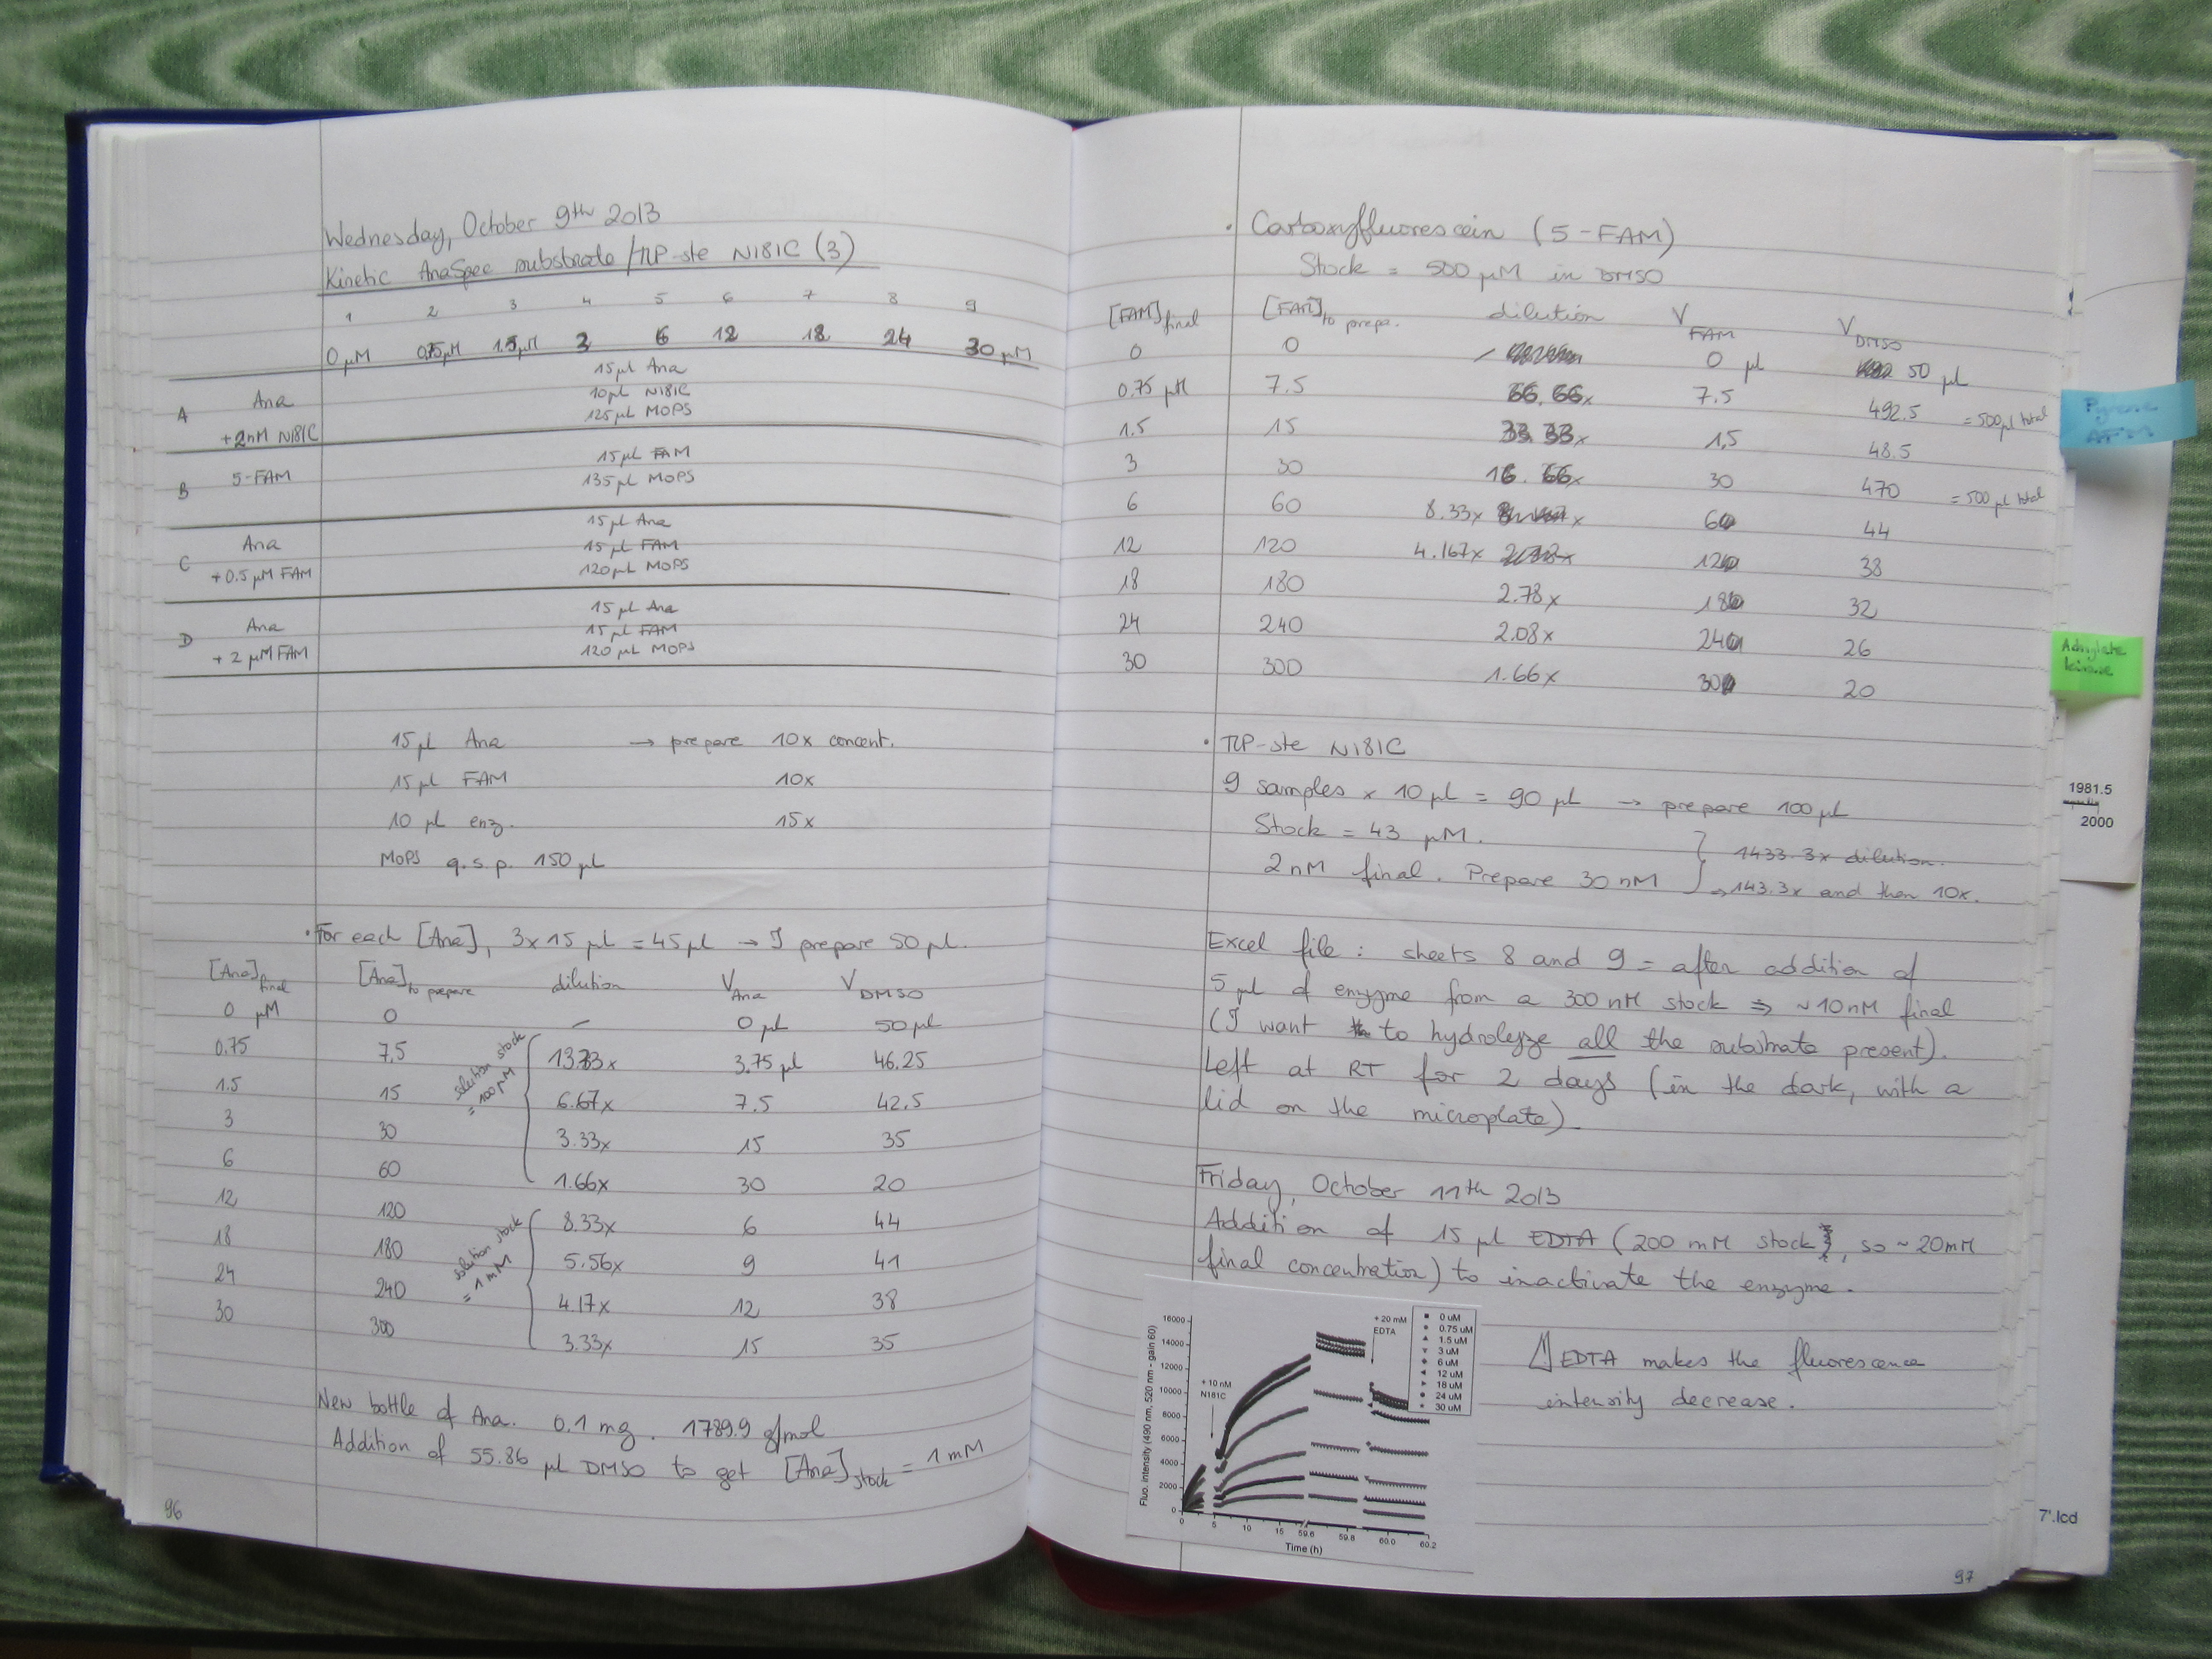 Wednesday, October 9th 2013
Kinetic AnaSpec substrate / TLP-ste N181C (3)
1 2 3 4 5 6 7 8 9
0 µM 0.75 µM 1.5 µM 3 6 12 18 24 30 µM
15 µl Ana
A Ana 10 µl N181C
+ 2nM N181C 125 µl MOPS
15 µl FAM
B 5-FAM 135 µl MOPS
15 µl Ana
C Ana 15 µl FAM
+ 0.5 µM FAM 120 µl MOPS
15 µl Ana
D Ana 15 µl FAM
+ 2 µM FAM 120 µl MOPS
15 µl Ana → prepare 10x concent.
15 µl FAM 10x
10 µl enz. 15x
MOPS q.s.p. 150 µl
• For each [Ana], 3 x 15 µl = 45 µl → I prepare 50 µl.
[Ana]final [Ana]to prepare dilution VAna VDMSO
0 µM 0 – 0 µl 50 µl
0.75 7.5 13.33x 3.75 µl 46.25
1.5 15 6.67x 7.5 42.5
3 30 3.33x 15 35
6 60 1.66x 30 20
solution stock
= 100 µM
12 120 8.33x 6 44
18 180 5.56x 9 41
24 240 4.17x 12 38
30 300 3.33x 15 35
solution stock
= 1 mM
New bottle of Ana. 0.1 mg. 1789.9 g/mol
Addition of 55.86 µl DMSO to get [Ana]stock = 1 mM
96
• Carboxyfluorescein (5-FAM)
Stock = 500 µM in DMSO
[FAM]final [FAM]to prepa. dilution VFAM VDMSO
0 0 – 0 µl 50 µl
0.75 µM 7.5 66.66x 7.5 492.5 = 500 µl total
1.5 15 33.33x 1,5 48.5
3 30 16.66x 30 470 = 500 µl total
6 60 8.33x 6 44
12 120 4.167x 12 38
18 180 2.78x 18 32
24 240 2.08x 24 26
30 300 1.66x 30 20
• TLP-ste N181C
9 samples x 10 µl = 90 µl → prepare 100 µl
Stock = 43 µM.
2 nM final. Prepare 30 nM
1433.3x dilution.
→ 143.3x and then 10x.
Excel file : sheets 8 and 9 = after addition of
5 µl of enzyme from a 300 nM stock => ~10 nM final
(I want to hydrolyze all the substrate present).
Left at RT for 2 days (in the dark, with a
lid on the microplate).
Friday, October 11th 2013
Addition of 15 µl EDTA (200 mM stock, so ~20mM
final concentration) to inactivate the enzyme.
Fluo. intensity (490 nm, 520 nm - gain 60)
16000
14000
12000
10000
8000
6000
4000
2000
0
0 5 10 15 59.6 59.8 60.0 60.2
Time (h)
+ 10 nM
N181C
+ 20 mM
EDTA
0 uM
0.75 uM
1.5 uM
3 uM
6 uM
12 uM
18 uM
24 uM
30 uM
⚠ EDTA makes the fluorescence
intensity decrease.
97
Adenylate
kinase
1981.5
2000
7'.lcd